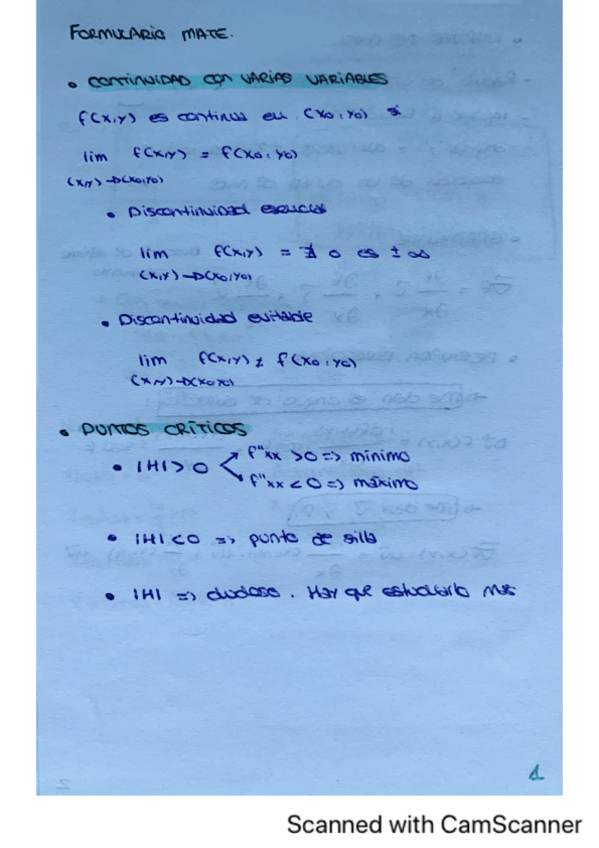 FORMULARIO MATE.
• CONTINUIDAD CON VARIAS VARIABLES
f(x,y) es continua en (x0,y0) si
lim f(x,y) = f(x0,y0)
(x,y)→(x0,y0)
• Discontinuidad esencial
lim f(x,y) = ∄ o es ± ∞
(x,y)→(x0,y0)
• Discontinuidad evitable
lim f(x,y) ≠ f(x0,y0)
(x,y)→(x0,y0)
• PUNTOS CRÍTICOS
f''xx > 0 => mínimo
• |H| > 0
f''xx < 0 => máximo
• |H| < 0 => punto de silla
• |H| => dudoso. Hay que estudiarlo más
1
2
Scanned with CamScanner